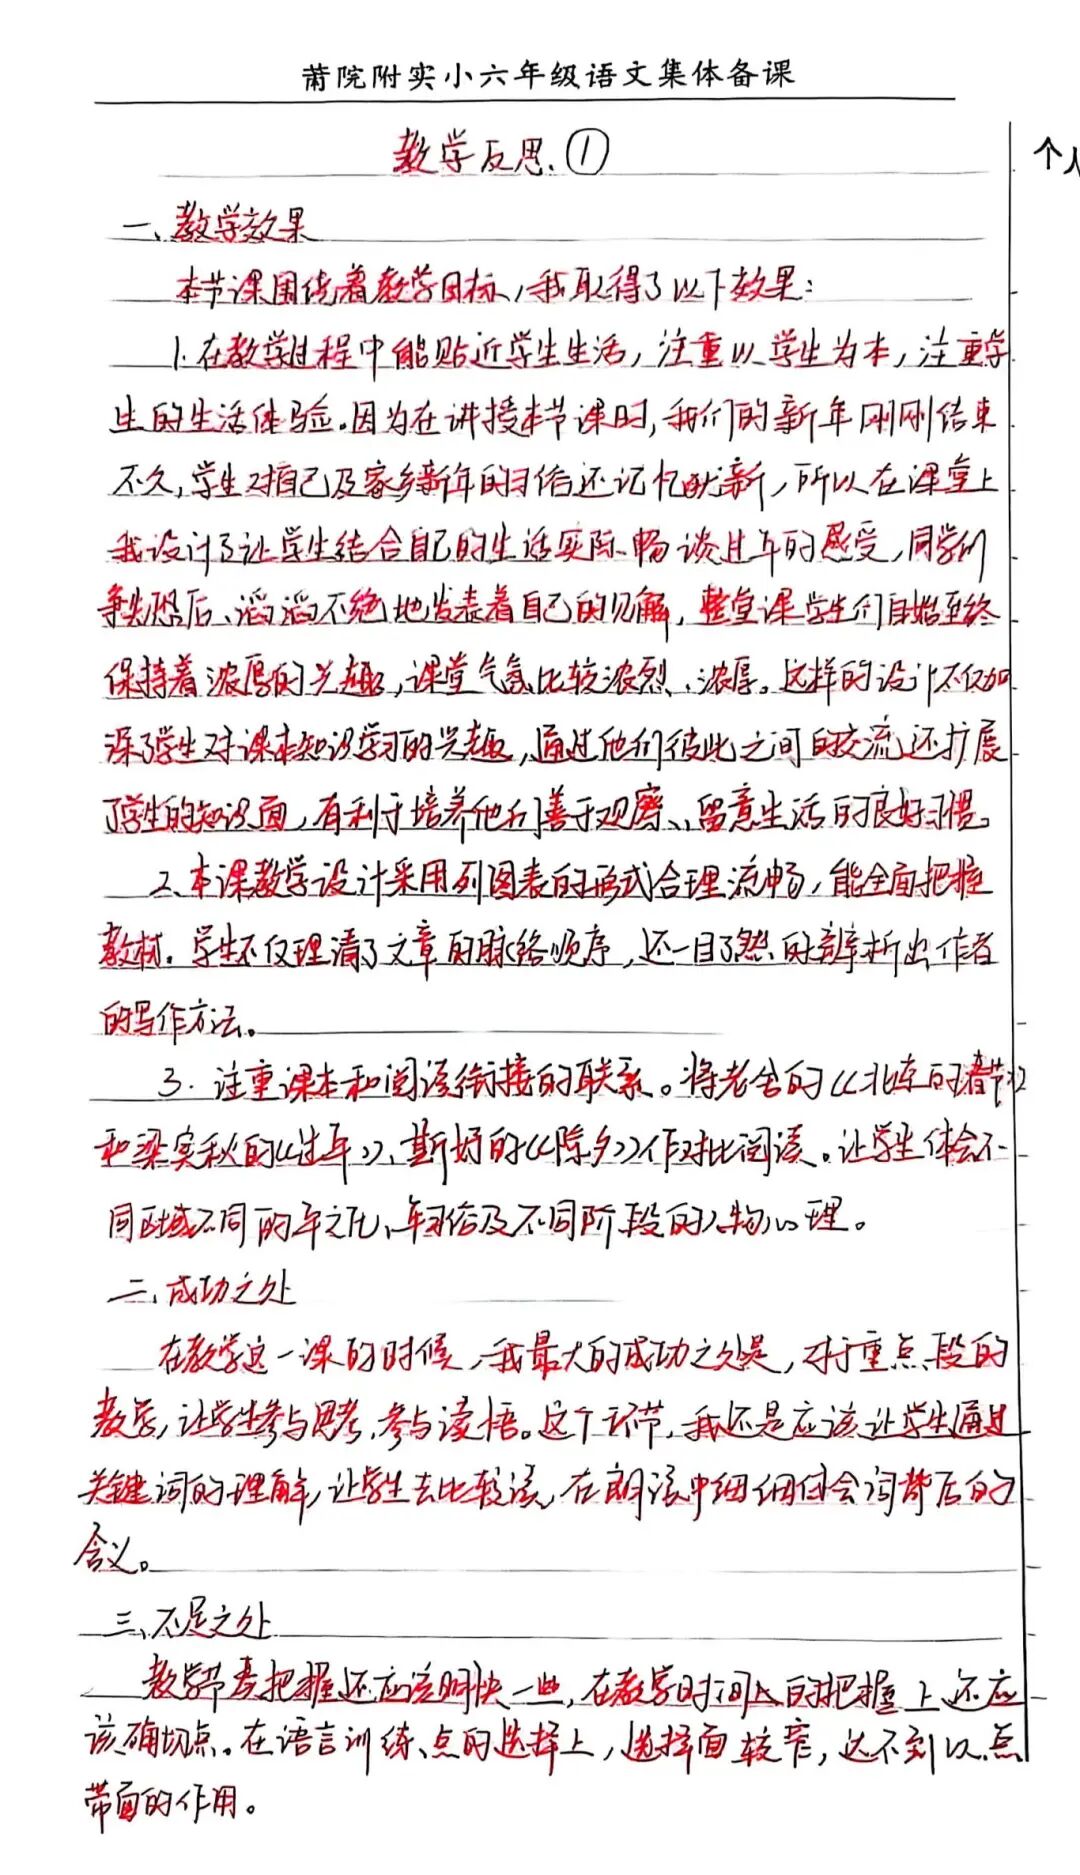 莆院附实小六年级语文集体备课
教学反思 ①
个人
一、教学效果
本节课围绕着教学目标，我取得了以下效果：
1.在教学过程中能贴近学生生活，注重以学生为本，注重学
生的生活体验。因为在讲授本节课时，我们的新年刚刚结束
不久，学生对自己及家乡新年的习俗还记忆犹新，所以在课堂上
我设计了让学生结合自己的生活实际畅谈过年的感受，同学们
争先恐后、滔滔不绝地发表着自己的见解，整堂课学生们自始至终
保持着浓厚的兴趣，课堂气氛比较浓烈、浓厚。这样的设计不仅加
深了学生对课本知识学习的兴趣，通过他们彼此之间的交流还扩展
了学生的知识面，有利于培养他们善于观察、留意生活的良好习惯。
2、本课教学设计采用列图表的形式合理流畅，能全面把握
教材。学生不仅理清了文章的脉络顺序，还一目了然的辨析出作者
的写作方法。
3.注重课本和阅读衔接的联系。将老舍的《北京的春节》
和梁实秋的《过年》、斯妤的《除夕》作对比阅读。让学生体会不
同区域不同的年文化、年习俗及不同阶段的人物心理。
二、成功之处
在教学这一课的时候，我最大的成功之处是，对于重点段的
教学，让学生参与思考，参与读悟。这个环节，我还是应该让学生通过
关键词的理解，让学生去比较读，在朗读中细细体会词背后的
含义。
三、不足之处
教学节奏把握还应该明快一些，在教学时间上的把握上还应
该确切点。在语言训练点的选择上，选择面较窄，达不到以点
带面的作用。